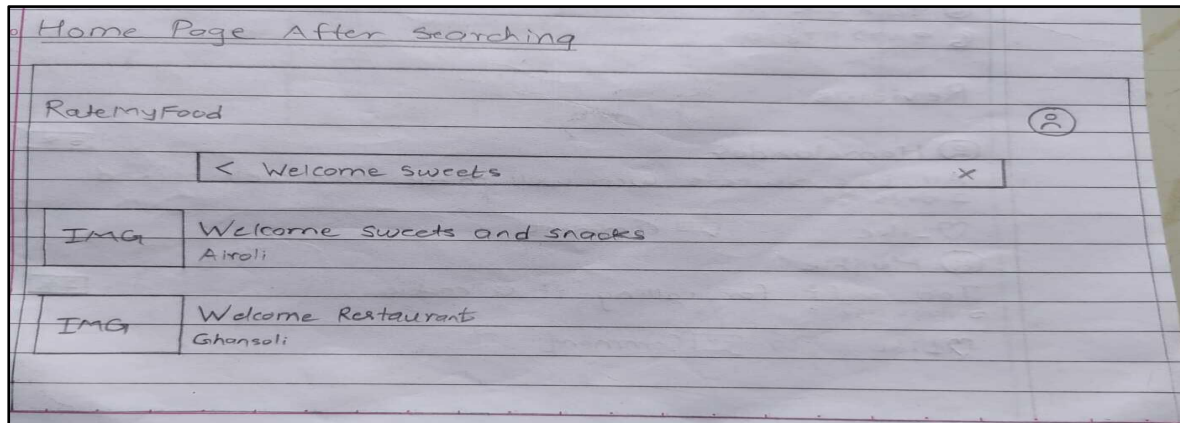 Home Page After Searching
RateMyFood
< Welcome sweets ×
IMG Welcome sweets and snacks
Airoli
IMG Welcome Restaurant
Ghansoli